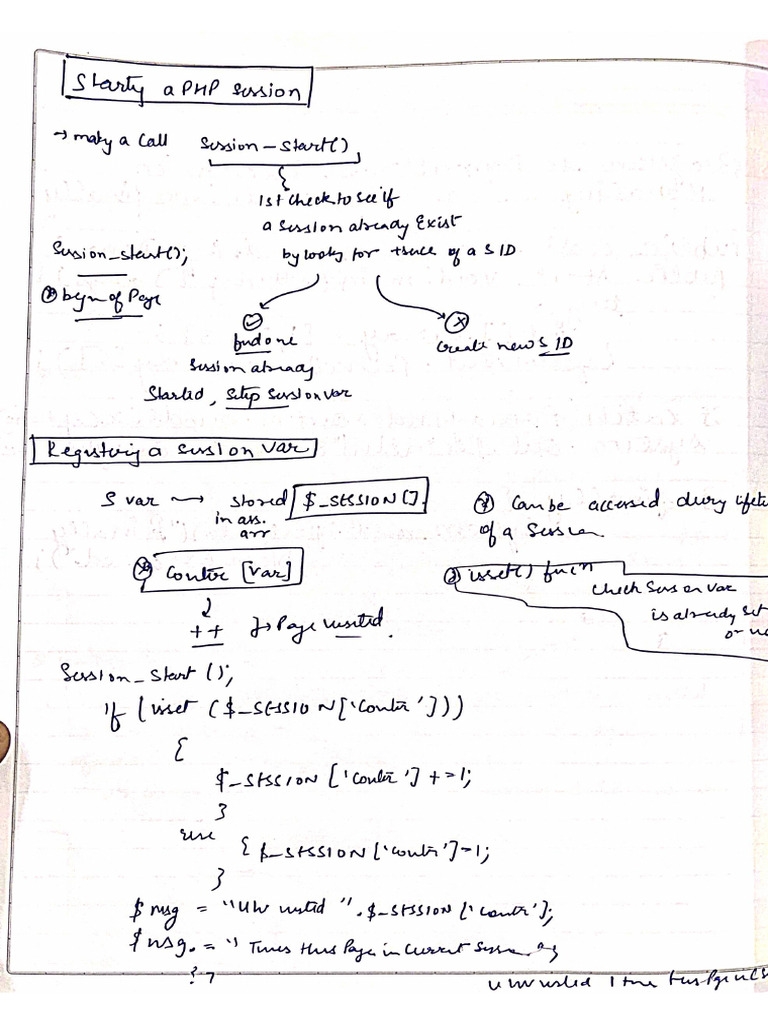 Starty a PHP Session
→ maky a Call Session_Start()
1st check to see if
a session already Exist
by looky for trace of a SID
Session_start();
begin of Page
find one
Session already
Started, Setup Session var
Create new SID
Registering a Session Var
S var → stored $_SESSION[].
in ass.
arr
Can be accessed dury lifeti
of a Session.
Contr [var]
isset() funcn
check Session var
is already set
or no
++ } → Page visited.
Session_Start();
if (isset ($_SESSION['Contr']))
{
$_SESSION ['Contr'] +=1;
}
else
{ $_SESSION['contr']=1;
}
$msg = "U hv visted ". $_SESSION['contr'];
$msg. = " Times this Page in Current Session
?>
U hv visited 1 time this Page in